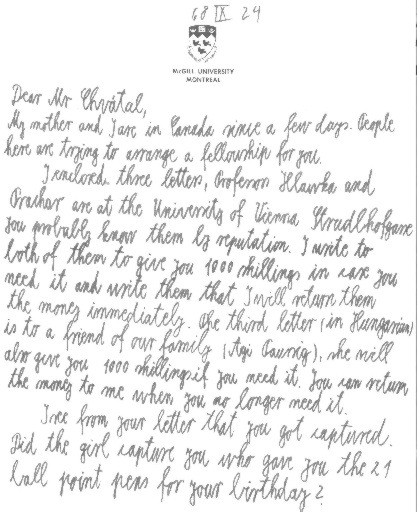 68 IX 24
McGILL UNIVERSITY
MONTREAL
Dear Mr Chvátal,
My mother and I are in Canada since a few days. People
here are trying to arrange a fellowship for you.
I enclosed three letters, Professors Hlawka and
Prachar are at the University of Vienna Strudlhofgasse
you probably know them by reputation. I write to
both of them to give you 1000 shillings in case you
need it and write them that I will return them
the money immediately. The third letter (in Hungarian)
is to a friend of our family (Agi), she will
also give you 1000 shillings if you need it. You can return
the money to me when you no longer need it.
I see from your letter that you got captured.
Did the girl capture you who gave you the 21
ball point pens for your birthday?